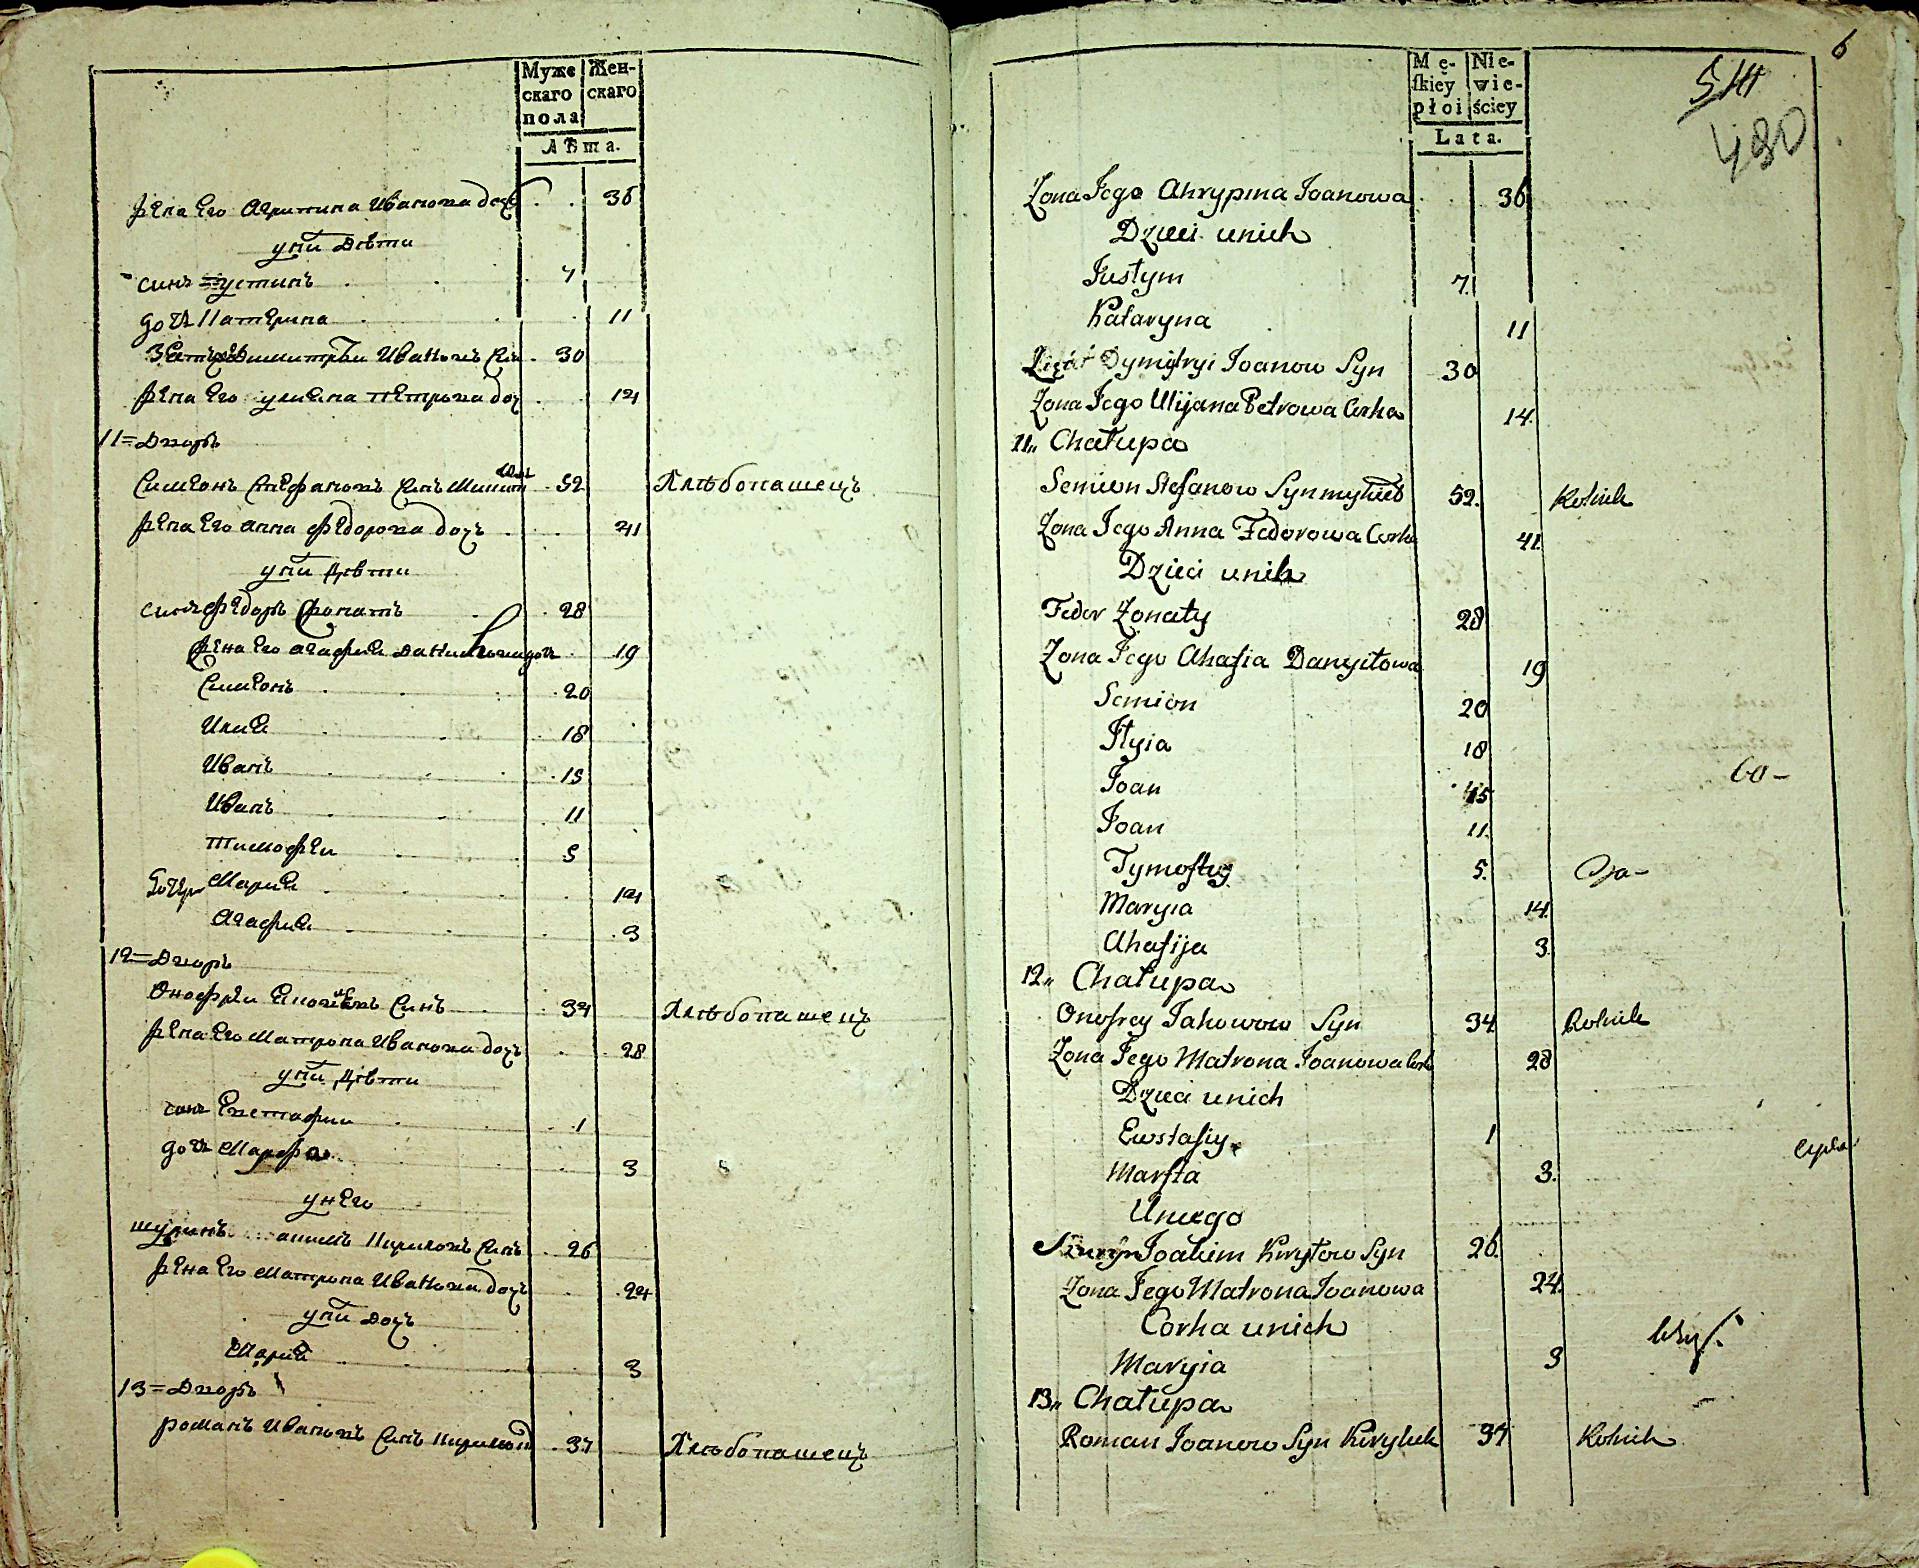 Муже
скаго
пола
Жен-
скаго
Лѣта.
жена Его Агрипина Иванова доч 36
у ни дѣти
синъ Іустинъ 7
доч Катерина 11
Зять Димитрѣи Ивановъ Син 30
жена Его улиана петрова доч 14
11= Дворъ
Симеонъ Стефановъ Синъ 52 Хлѣбопашецъ
жена Его анна федорова дочъ 41
у ни дѣти
синъ федоръ 28
жена Его агафия данилова доч 19
Симеонъ 20
Илиа 18
Иванъ 15
Иванъ 11
тимофеи 5
Дочери Мариа 14
Агафиа 3
12= Дворъ
Онофреи Синъ 34 Хлѣбопашецъ
жена Его Матрона Иванова дочъ 28
у ни дѣти
синъ Евстафии 1
доч Марфа 3
у него
шуринъ акимъ Кириловъ Синъ 26
жена Его матрона Иванова дочъ 24
у ни дочъ
Мариа 3
13= Дворъ
романъ Ивановъ Синъ 37 Хлѣбопашецъ
6
Mę-
skiey
płoi
Nie-
wie-
ściey
Lata.
514
480
Zona Jego Ahrypina Joanowa 36
Dzieci unich
Justym 7
Kataryna 11
Dymitryi Joanow Syn 30
Zona Jego Ulijana Petrowa Corka 14
11„ Chałupa
Semion Stefanow Syn 52. Rolnik
Zona Jego Anna Fedorowa Corka 41
Dzieci unich
Fedor Zonaty 28
Zona Jego Ahafia Danyiłowa 19
Semion 20
Ilyia 18
Joan 15
Joan 11.
Tymoftey 5.
Maryia 14
Ahafija 3
12„ Chałupa
Onofrey Jakowow Syn 34 Rolnik
Zona Jego Matrona Joanowa Cork 28
Dzieci unich
Ewstafiy 1
Marfta 3.
Uniego
Szuryn Joakim Kiryłow Syn 26
Zona Jego Matrona Joanowa 24
Corka unich
Maryia 3
13„ Chałupa
Roman Joanow Syn 37 Rolnik